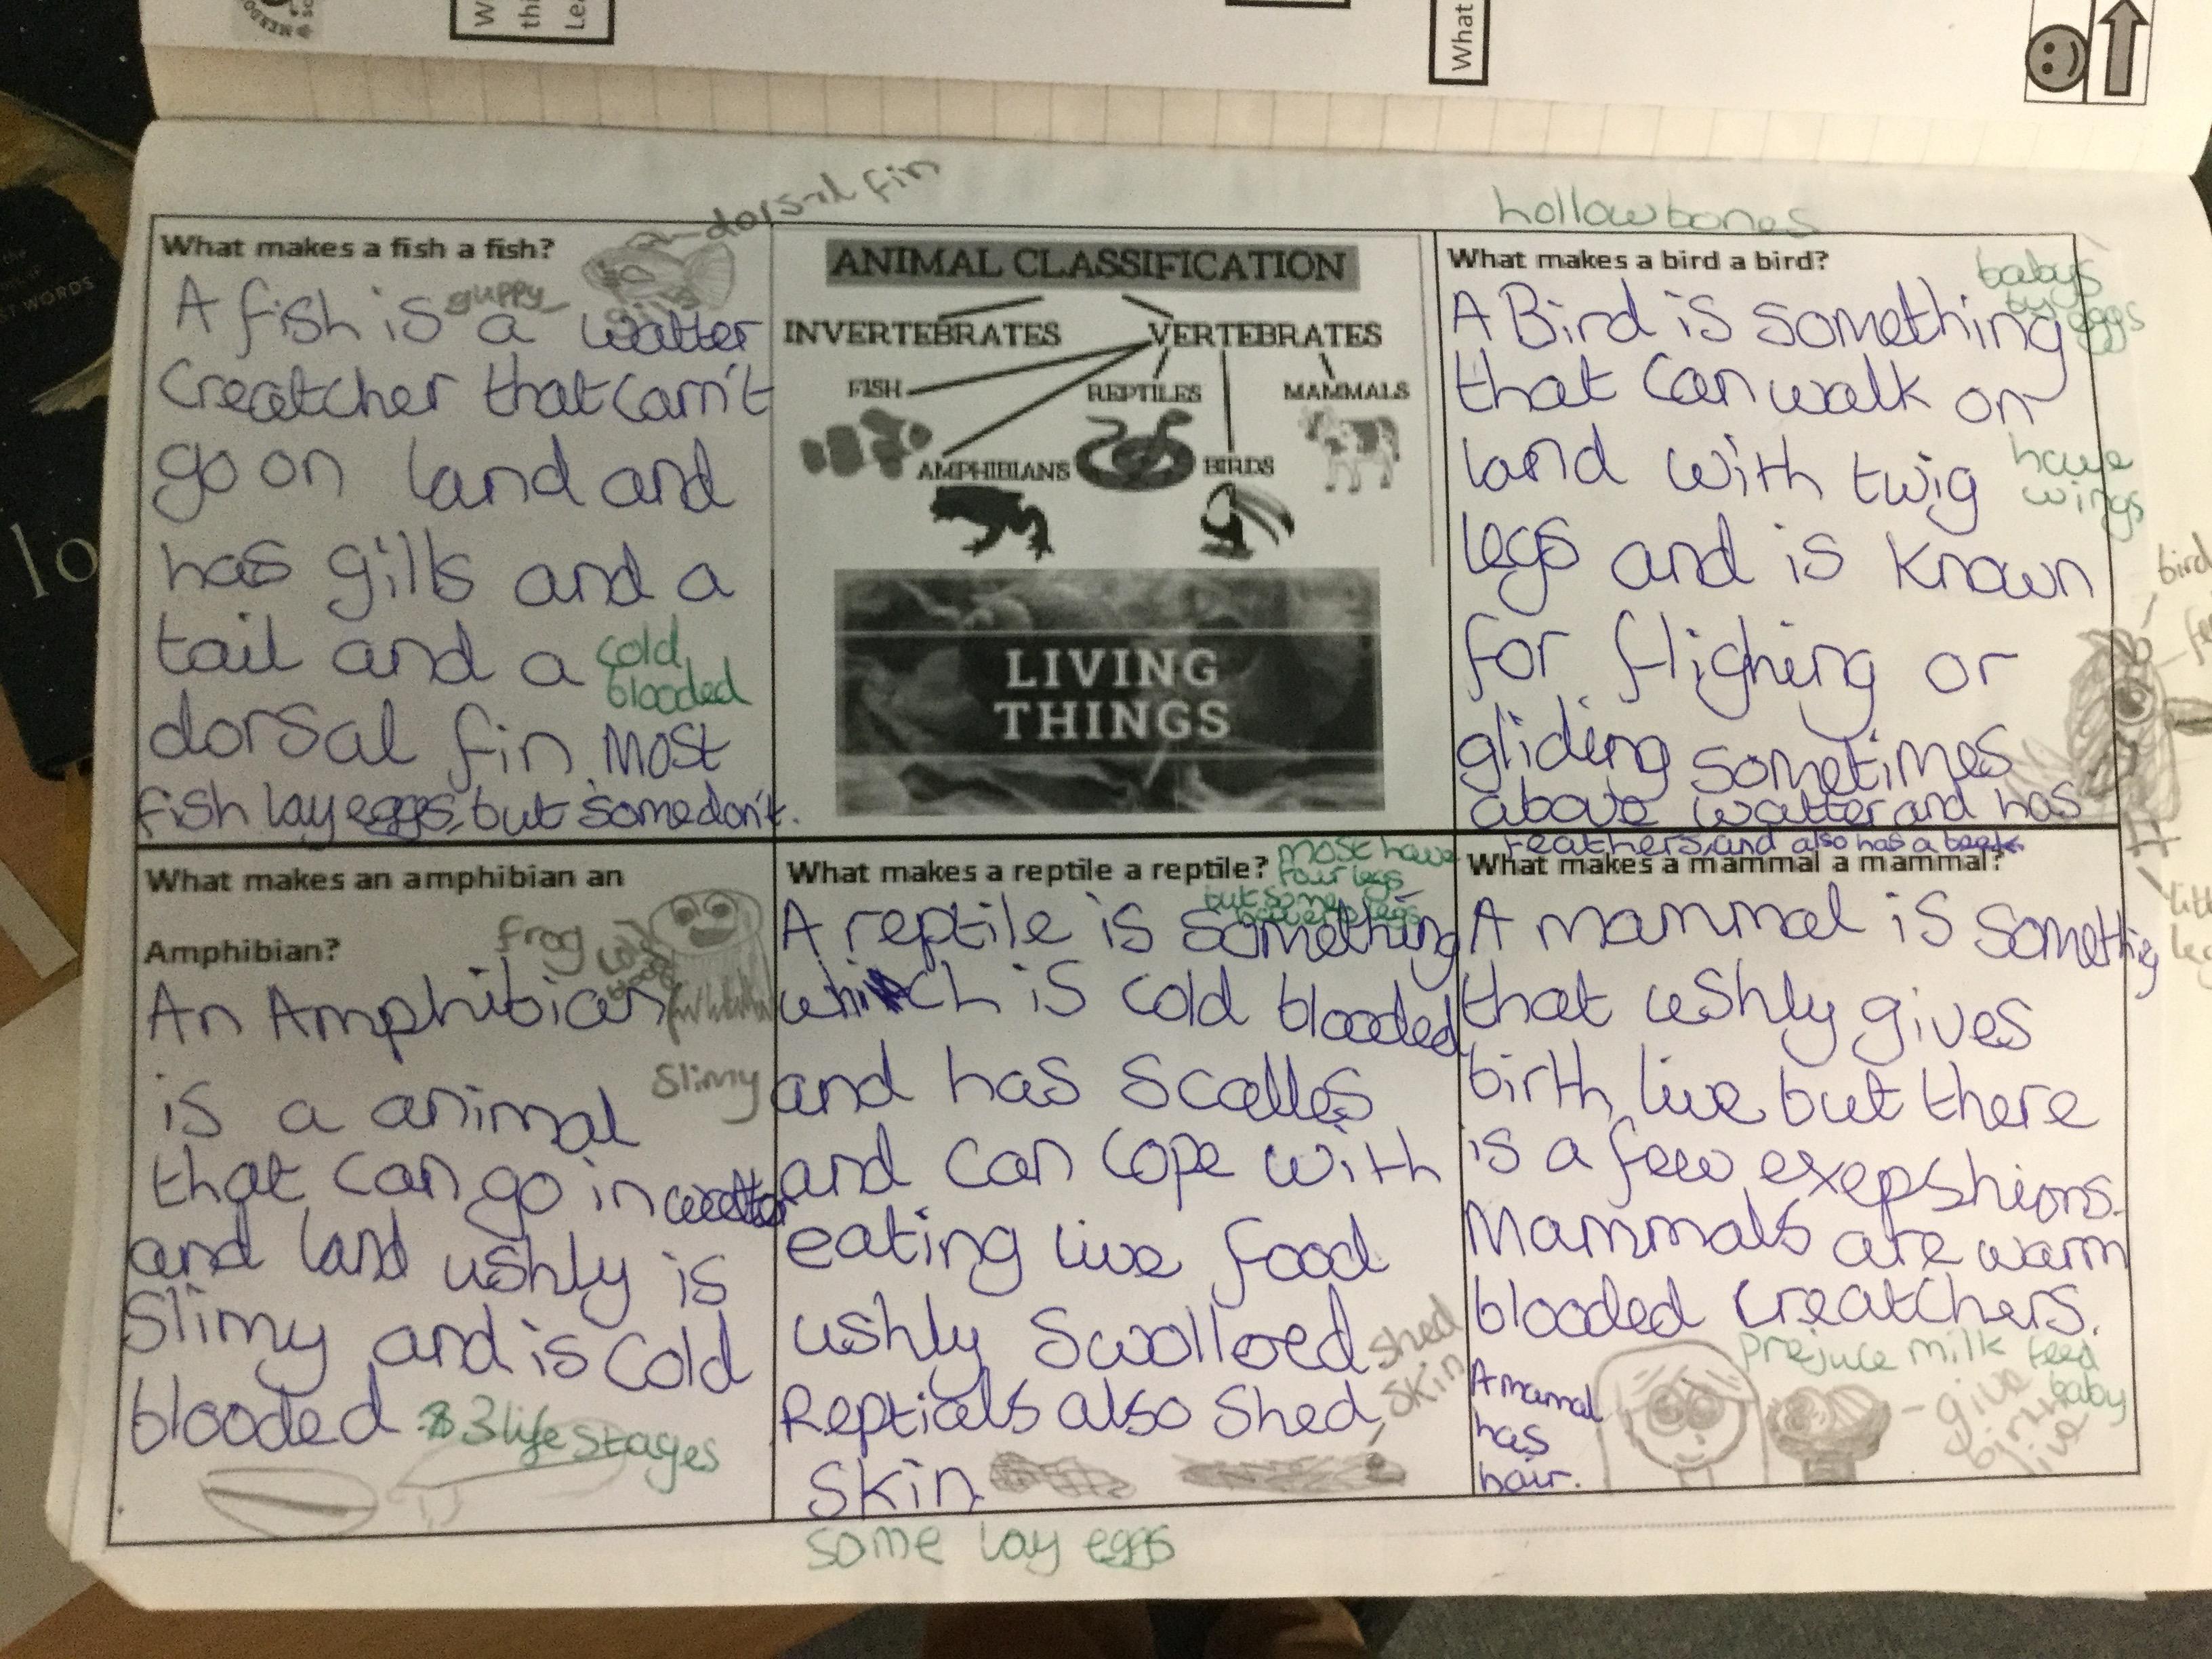 W
thi
Lea
What
lo
ST WORDS
dorsal fin
hollow bones
What makes a fish a fish?
guppy
A fish is a watter
Creatcher that carn't
go on land and
has gills and a
tail and a
cold
blooded
dorsal fin. Most
fish lay eggs, but some don't.
ANIMAL CLASSIFICATION
INVERTEBRATES VERTEBRATES
FISH REPTILES MAMMALS
AMPHIBIANS BIRDS
LIVING
THINGS
What makes a bird a bird?
babys
by eggs
A Bird is something
that can walk on
land with twig
have
wings
legs and is known
for flighing or
gliding sometimes
above watter and has
feathers and also has a beak
bird
What makes an amphibian an
Amphibian?
frog
slimy
An Amphibian
is a animal
that can go in watter
and land ushly is
Slimy and is cold
blooded
3 life stages
What makes a reptile a reptile?
most have
four legs
but some
A reptile is something
which is cold blooded
and has scalles
and can cope with
eating live food
ushly swollored
Reptials also shed
skin
shed
skin
some lay eggs
What makes a mammal a mammal?
A mammal is something
that ushly gives
birth live but there
is a few exepshions.
Mammals are warm
blooded creatchers.
prejuce milk feed
baby
A mamal
has
hair.
give
birth
live